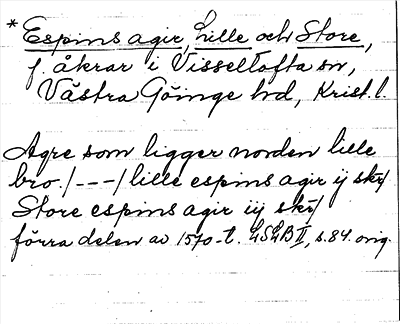 * Espins agir, Lille och Store,
f. åkrar i Visseltofta sn,
Västra Göinge hd, Krist. l.
Agre som ligger norden lille
bro /---/ lille espins agir ij skr/
Store espins agir iij skr/
förra delen av 1570-t. LSLB II, s. 84. orig.